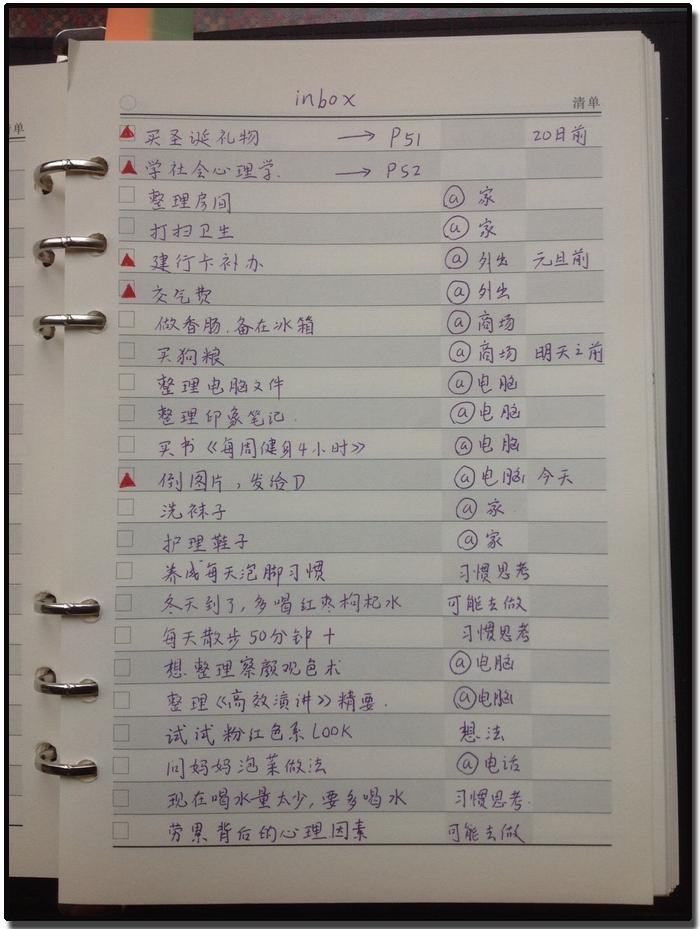 inbox 清单
单
买圣诞礼物 → P51 20日前
学社会心理学. → P52
整理房间 @ 家
打扫卫生 @ 家
建行卡补办 @ 外出 元旦前
交气费 @ 外出
做香肠.备在冰箱 @ 商场
买狗粮 @ 商场 明天之前
整理电脑文件 @ 电脑
整理印象笔记. @ 电脑
买书《每周健身4小时》 @ 电脑
倒图片,发给D @ 电脑 今天
洗袜子 @ 家
护理鞋子 @ 家
养成每天泡脚习惯 习惯思考
冬天到了,多喝红枣枸杞水 可能去做
每天散步50分钟+ 习惯思考
想整理察颜观色术 @ 电脑
整理《高效演讲》精要. @ 电脑
试试粉红色系LOOK 想法
问妈妈泡菜做法 @ 电话
现在喝水量太少,要多喝水 习惯思考.
劳累背后的心理因素 可能去做